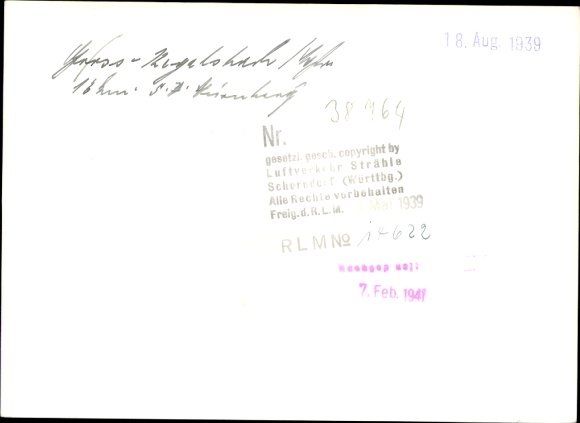 18. Aug. 1939
16 km. S. Ö. Nürnberg
38964
Nr.
gesetzl. gesch. copyright by
Luftverkehr Strähle
Schorndorf (Württbg.)
Alle Rechte vorbehalten
Freig. d. R.L.M. Mai 1939
RLM No 14622
7. Feb. 1941